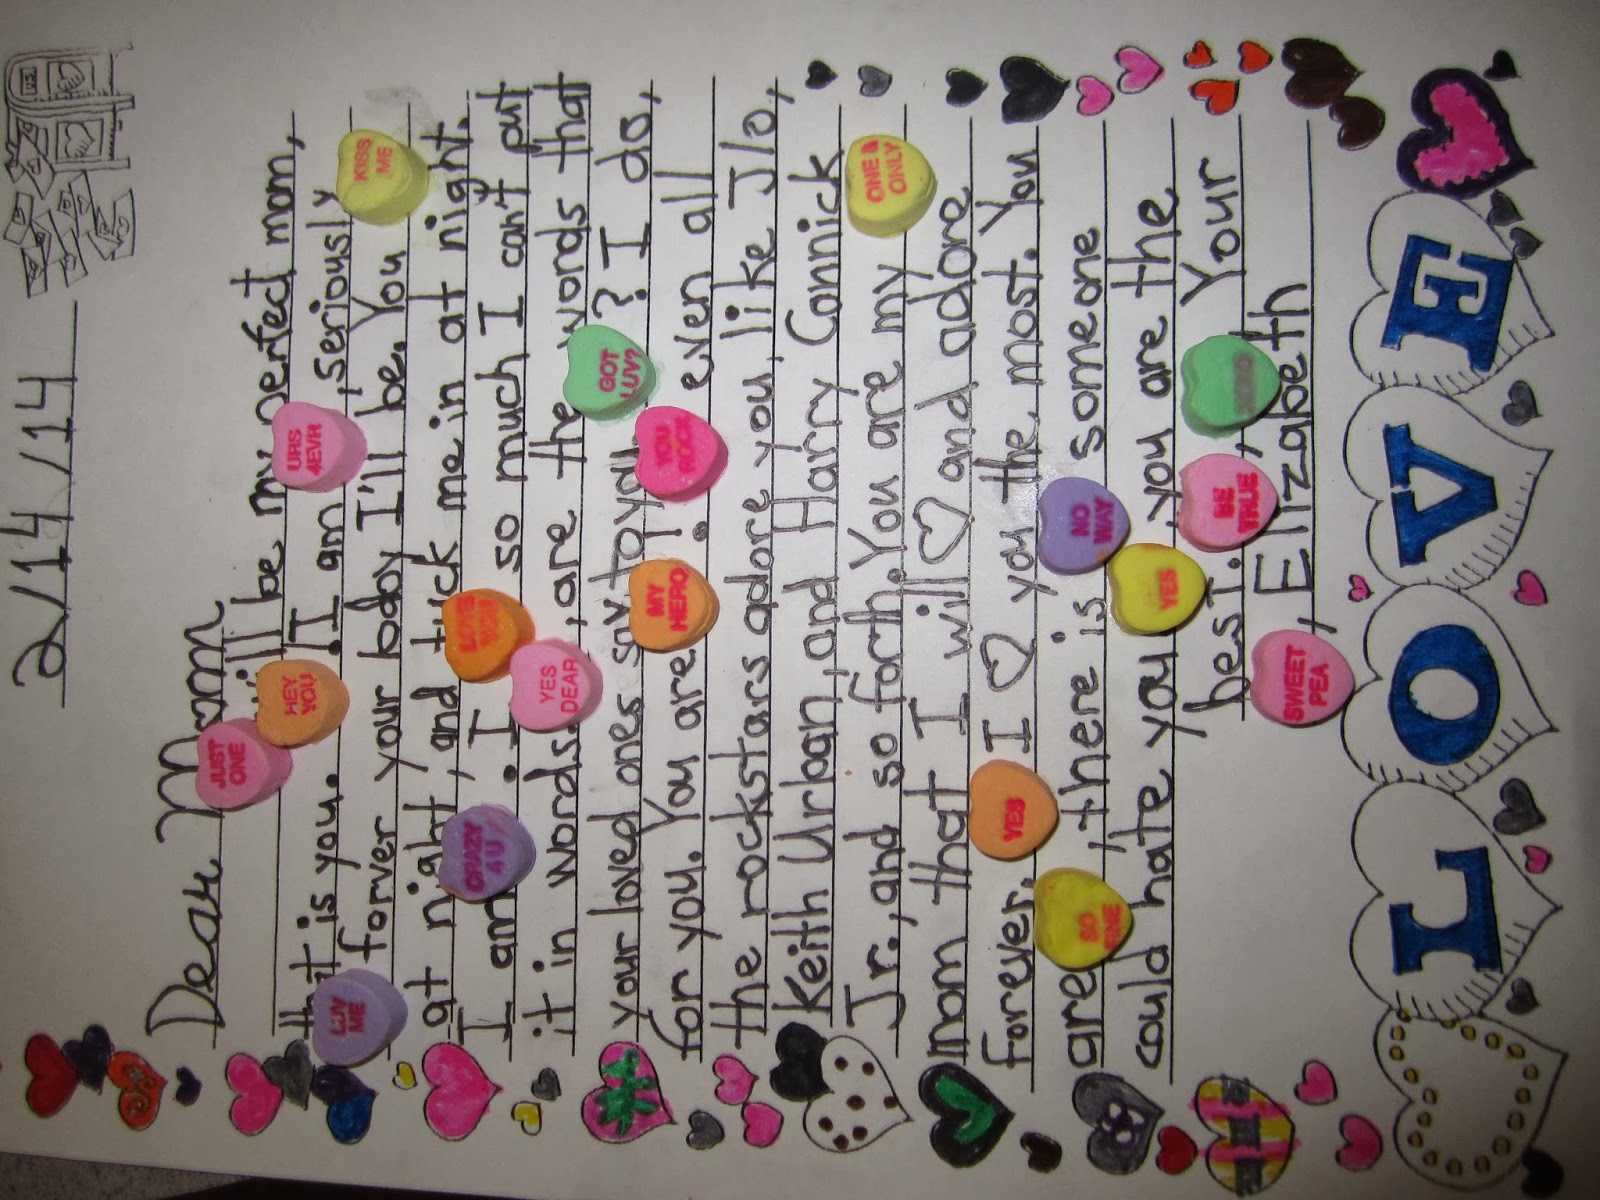 2/14/14
Dear Mom
JUST ONE
HEY YOU
will be my perfect mom,
that is you.
URS 4EVR
! I am, seriously
LUV ME
KISS ME
forver your body I'll be. You
at night, and tuck me in at night.
I am
CRAZY 4 U
LOVE YOU
. I so much I can't put
it in words.
YES DEAR
, are the words that
your loved ones say to you
GOT LUV?
? I do,
for you. You are
MY HERO
!
YOU ROCK
even all
the rockstars adore you, like Jlo,
Keith Urban, and Harry Connick
Jr., and so forth. You are my
ONE & ONLY
mom that I will ♡ and adore
forever.
YES
I ♡ you the most. You
are
SO FINE
, there is
NO WAY
someone
could hate you
YES
, you are the
best.
BE TRUE
, Your
SWEET PEA
, Elizabeth
LOVE